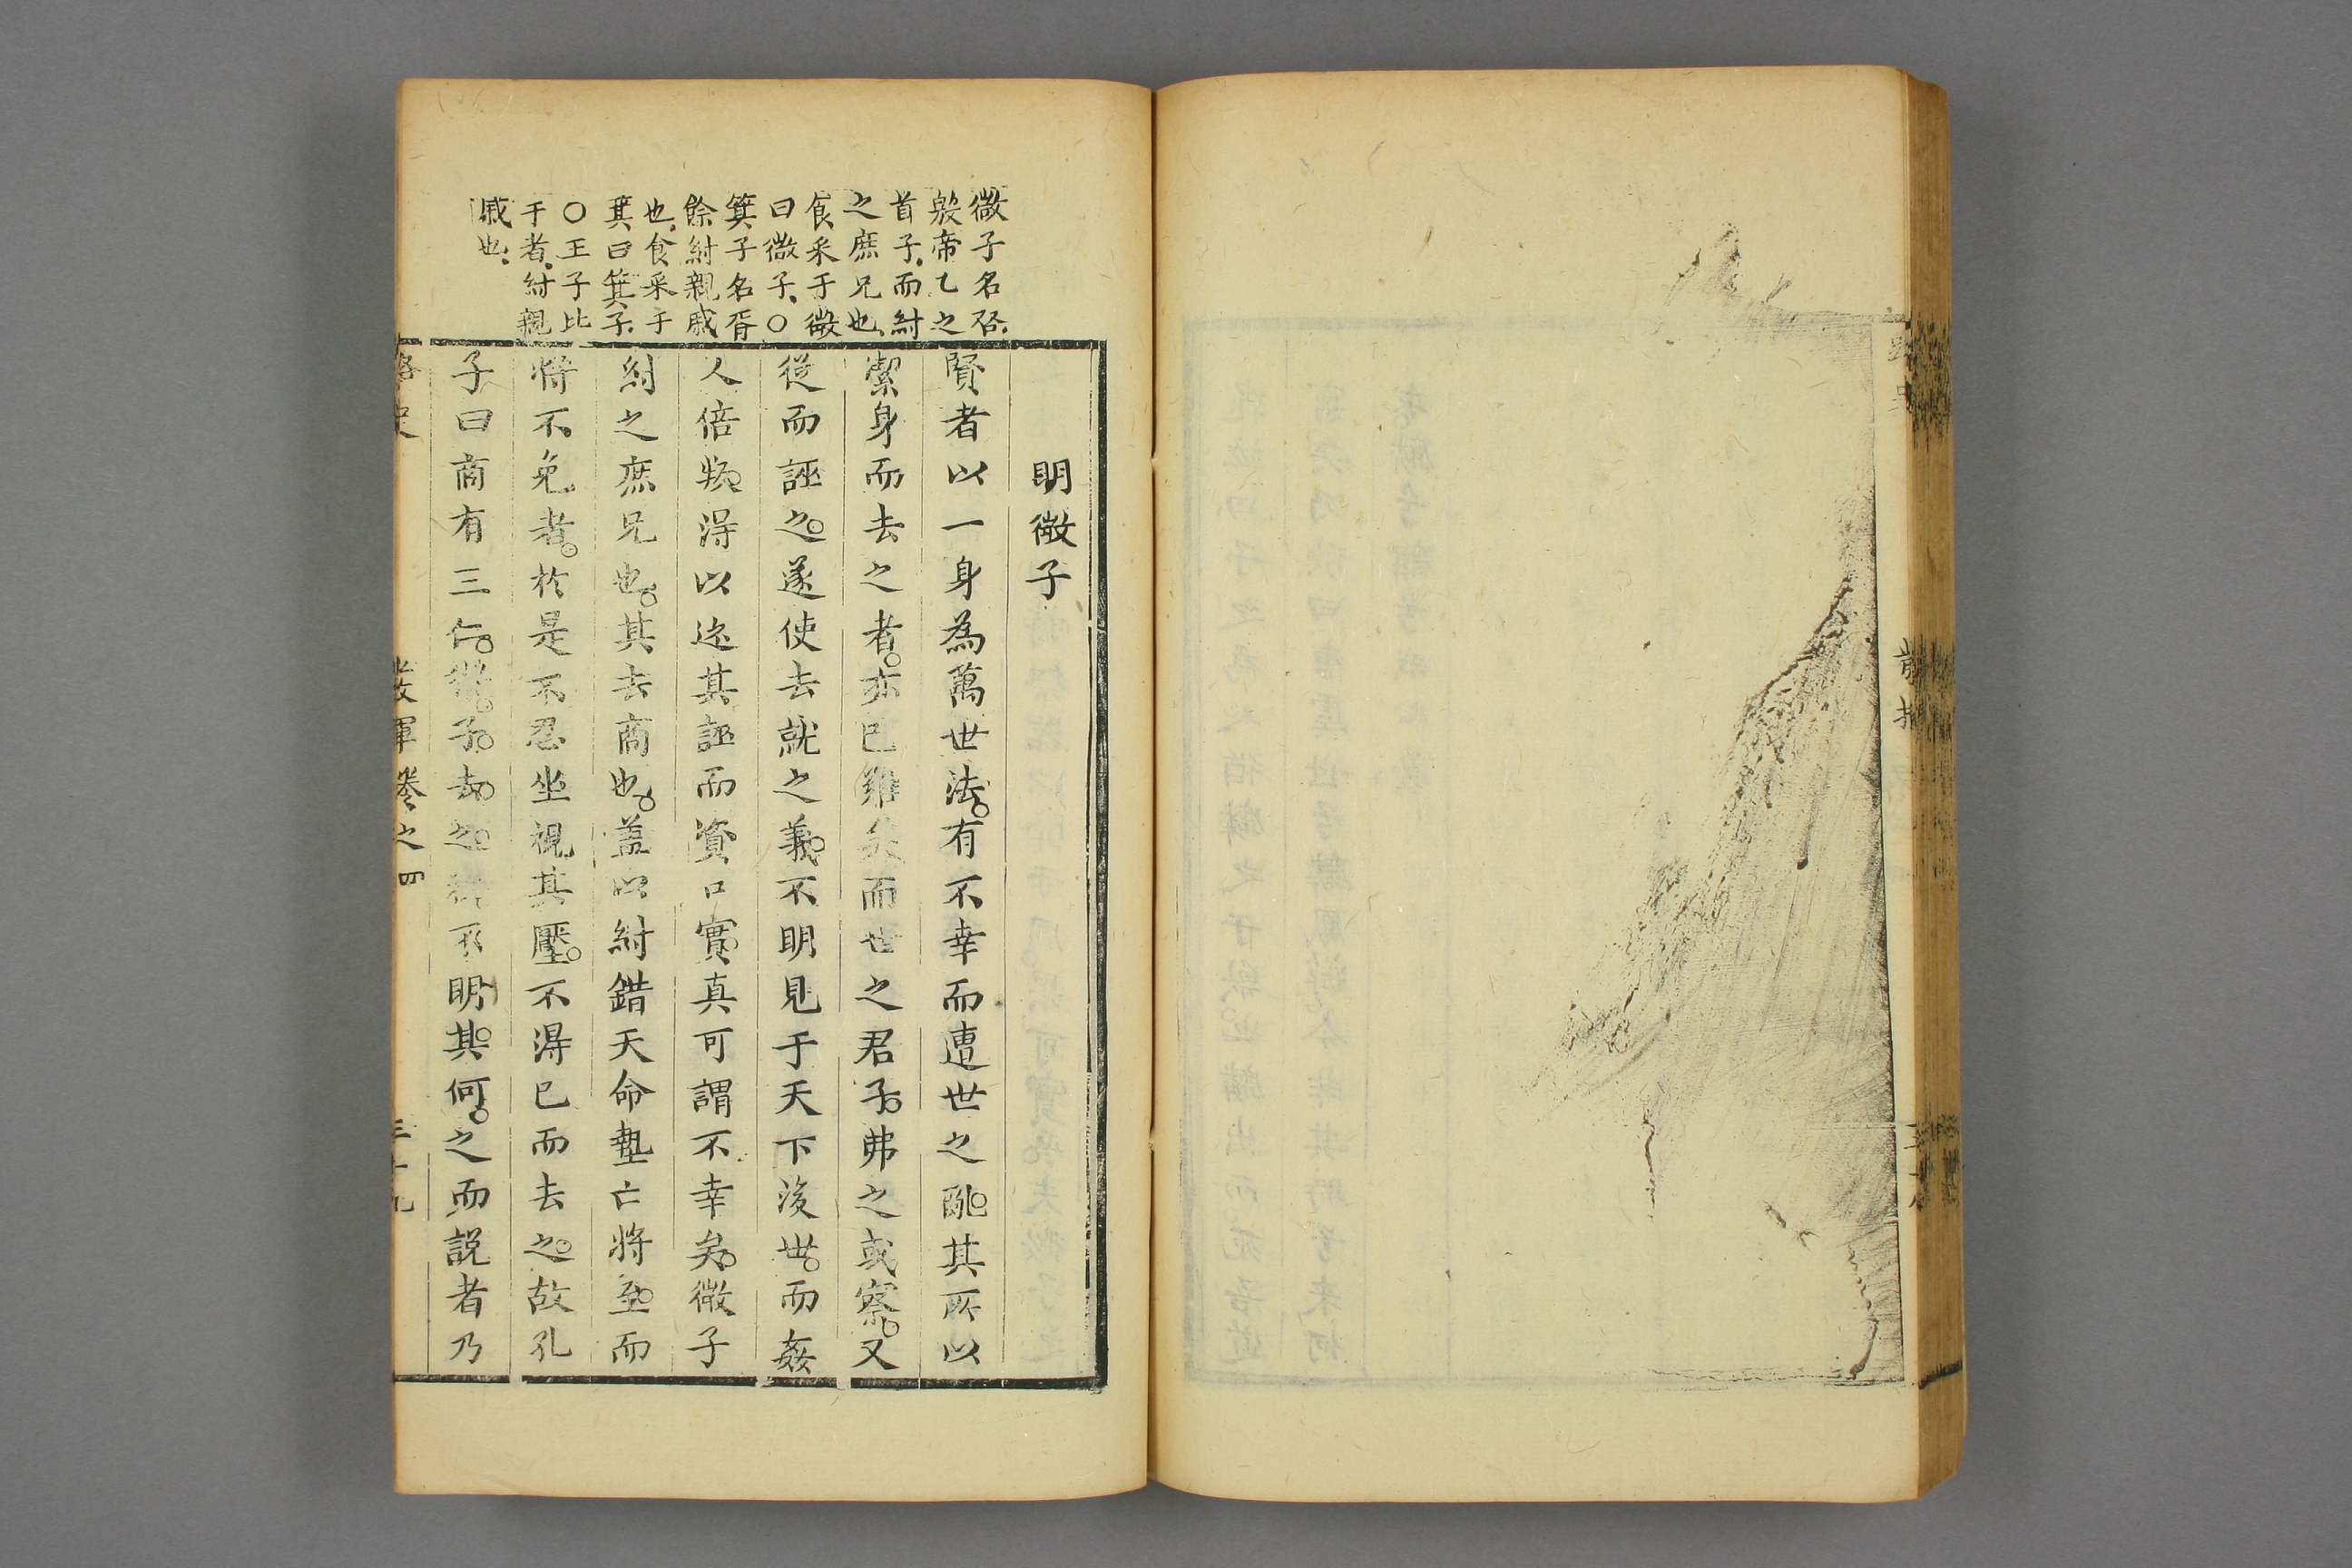 明微子
賢者以一身為萬世法有不幸而遭世之亂其所以
潔身而去之者亦已難矣而世之君子弗之或察又
從而誣之遂使去就之義不明見于天下後世而姦
人倍叛得以迯其誣而資口實真可謂不幸矣微子
紂之庶兄也其去商也蓋以紂錯天命墊亡將至而
將不免者於是不忍坐視其壓不得已而去之故孔
子曰商有三仁微子去之 不明其何之而說者乃
微子名啓
殷帝乙之
首子而紂
之庶兄也
食采于微
曰微子〇
箕子名胥
餘紂親戚
也食采于
箕曰箕子
〇王子比
干者紂親
戚也
路史
發揮卷之四
三十九